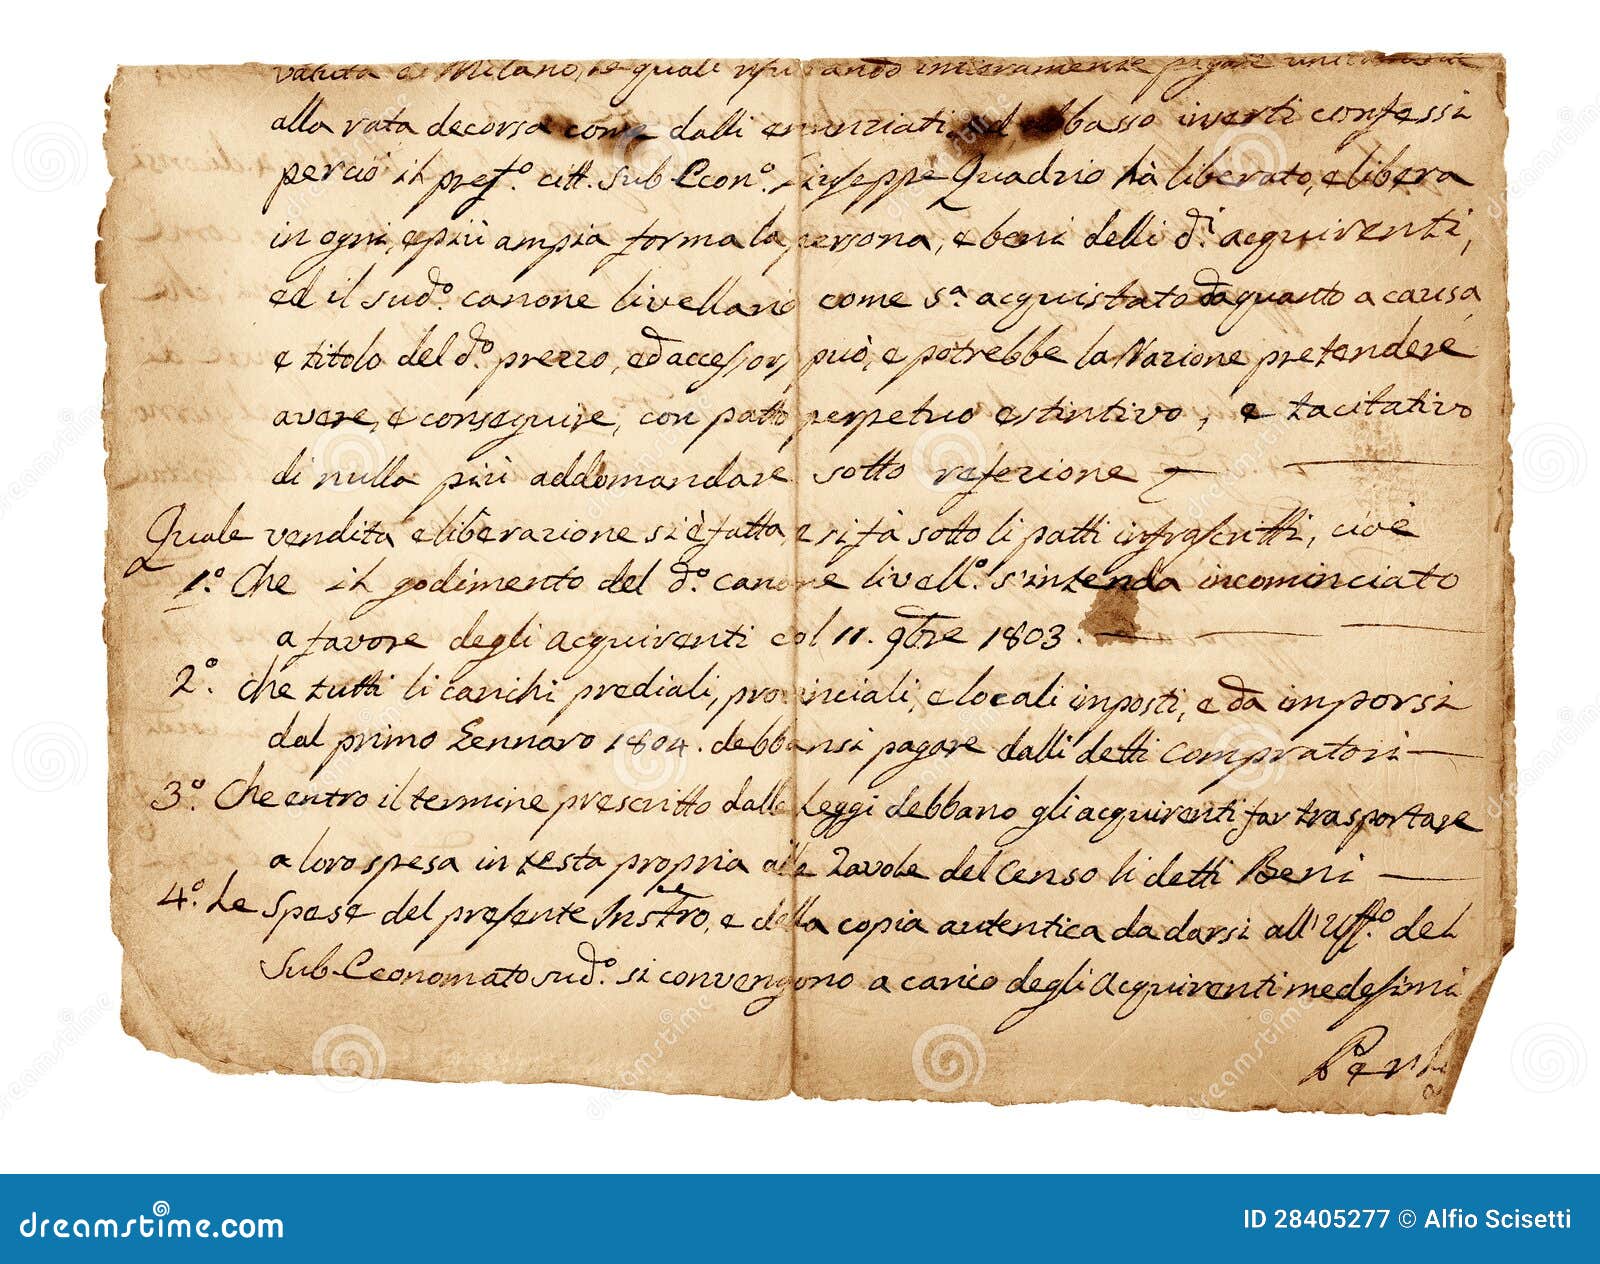 valuta di Milano, le quali
alla rata decorsa come dalli enunziati, ed abbasso inserti confessi
perciò il pref.º citt. Sub-Econ.º Giuseppe Quadrio hà liberato, e libera
in ogni, e più ampia forma la persona, e beni delli d.i acquirenti,
ed il sud.º canone livellario come s.a acquistato da quanto a causa,
e titolo del d.º prezzo, ed accessorj può, e potrebbe la Nazione pretendere
avere, e conseguire, con patto perpetuo estintivo, e tacitativo
di nulla più addomandare sotto refezione
Quale vendita e liberazione si è fatta, e si fà sotto li patti infrascritti, cioè
1.º Che il godimento del d.º canone livell.º s'intenda incominciato
a favore degli acquirenti col 11. 9bre 1803.
2.º Che tutti li carichi prediali, provinciali, e locali imposti, e da imporsi
dal primo Gennaro 1804. debbansi pagare dalli detti compratori
3.º Che entro il termine prescritto dalle Leggi debbano gli acquirenti far trasportare
a loro spesa in testa propria alle Tavole del Censo li detti Beni
4.º Le spese del presente Instro, e della copia autentica da darsi all'Uff.º del
Sub-Economato sud.º si convengono a carico degli Acquirenti medesimi
dreamstime.com
ID 28405277 © Alfio Scisetti